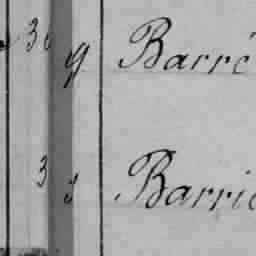 30 9 Barré
3 s Barri